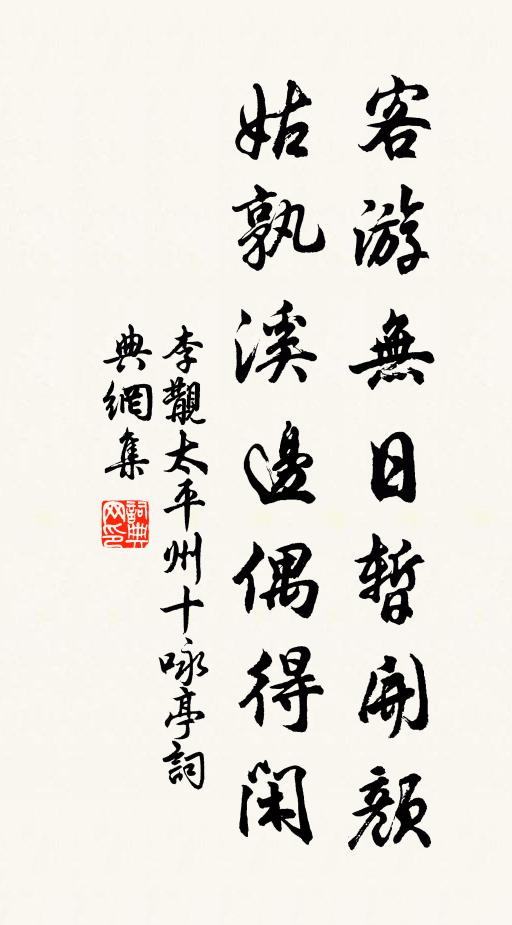 客游無日暫開顏
姑孰溪邊偶得閑
李觀太平州十咏亭詞
典網集
詞典
网印